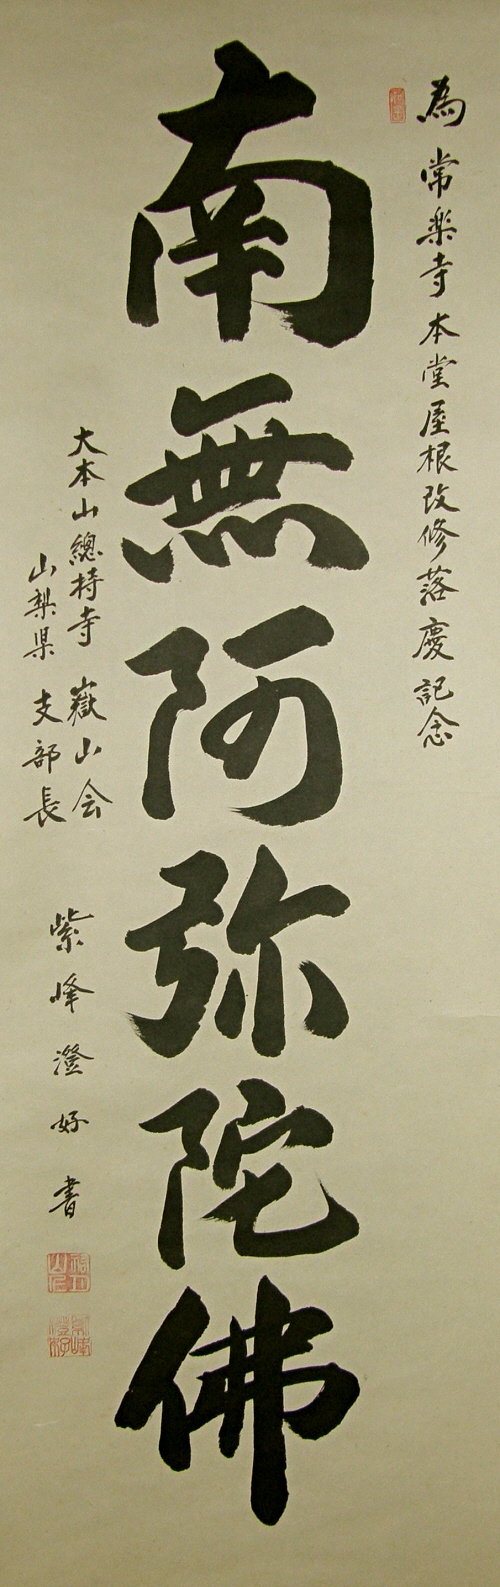 為 常楽寺本堂屋根改修落慶記念
南無阿弥陀佛
大本山總持寺 嶽山会
山梨県 支部長
紫峰澄好書